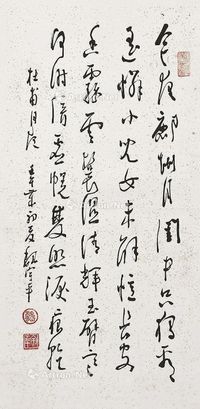 今夜鄜州月闺中只独看
遥怜小儿女未解忆长安
香雾云鬟湿清辉玉臂寒
何时倚虚幌双照泪痕干
杜甫月夜